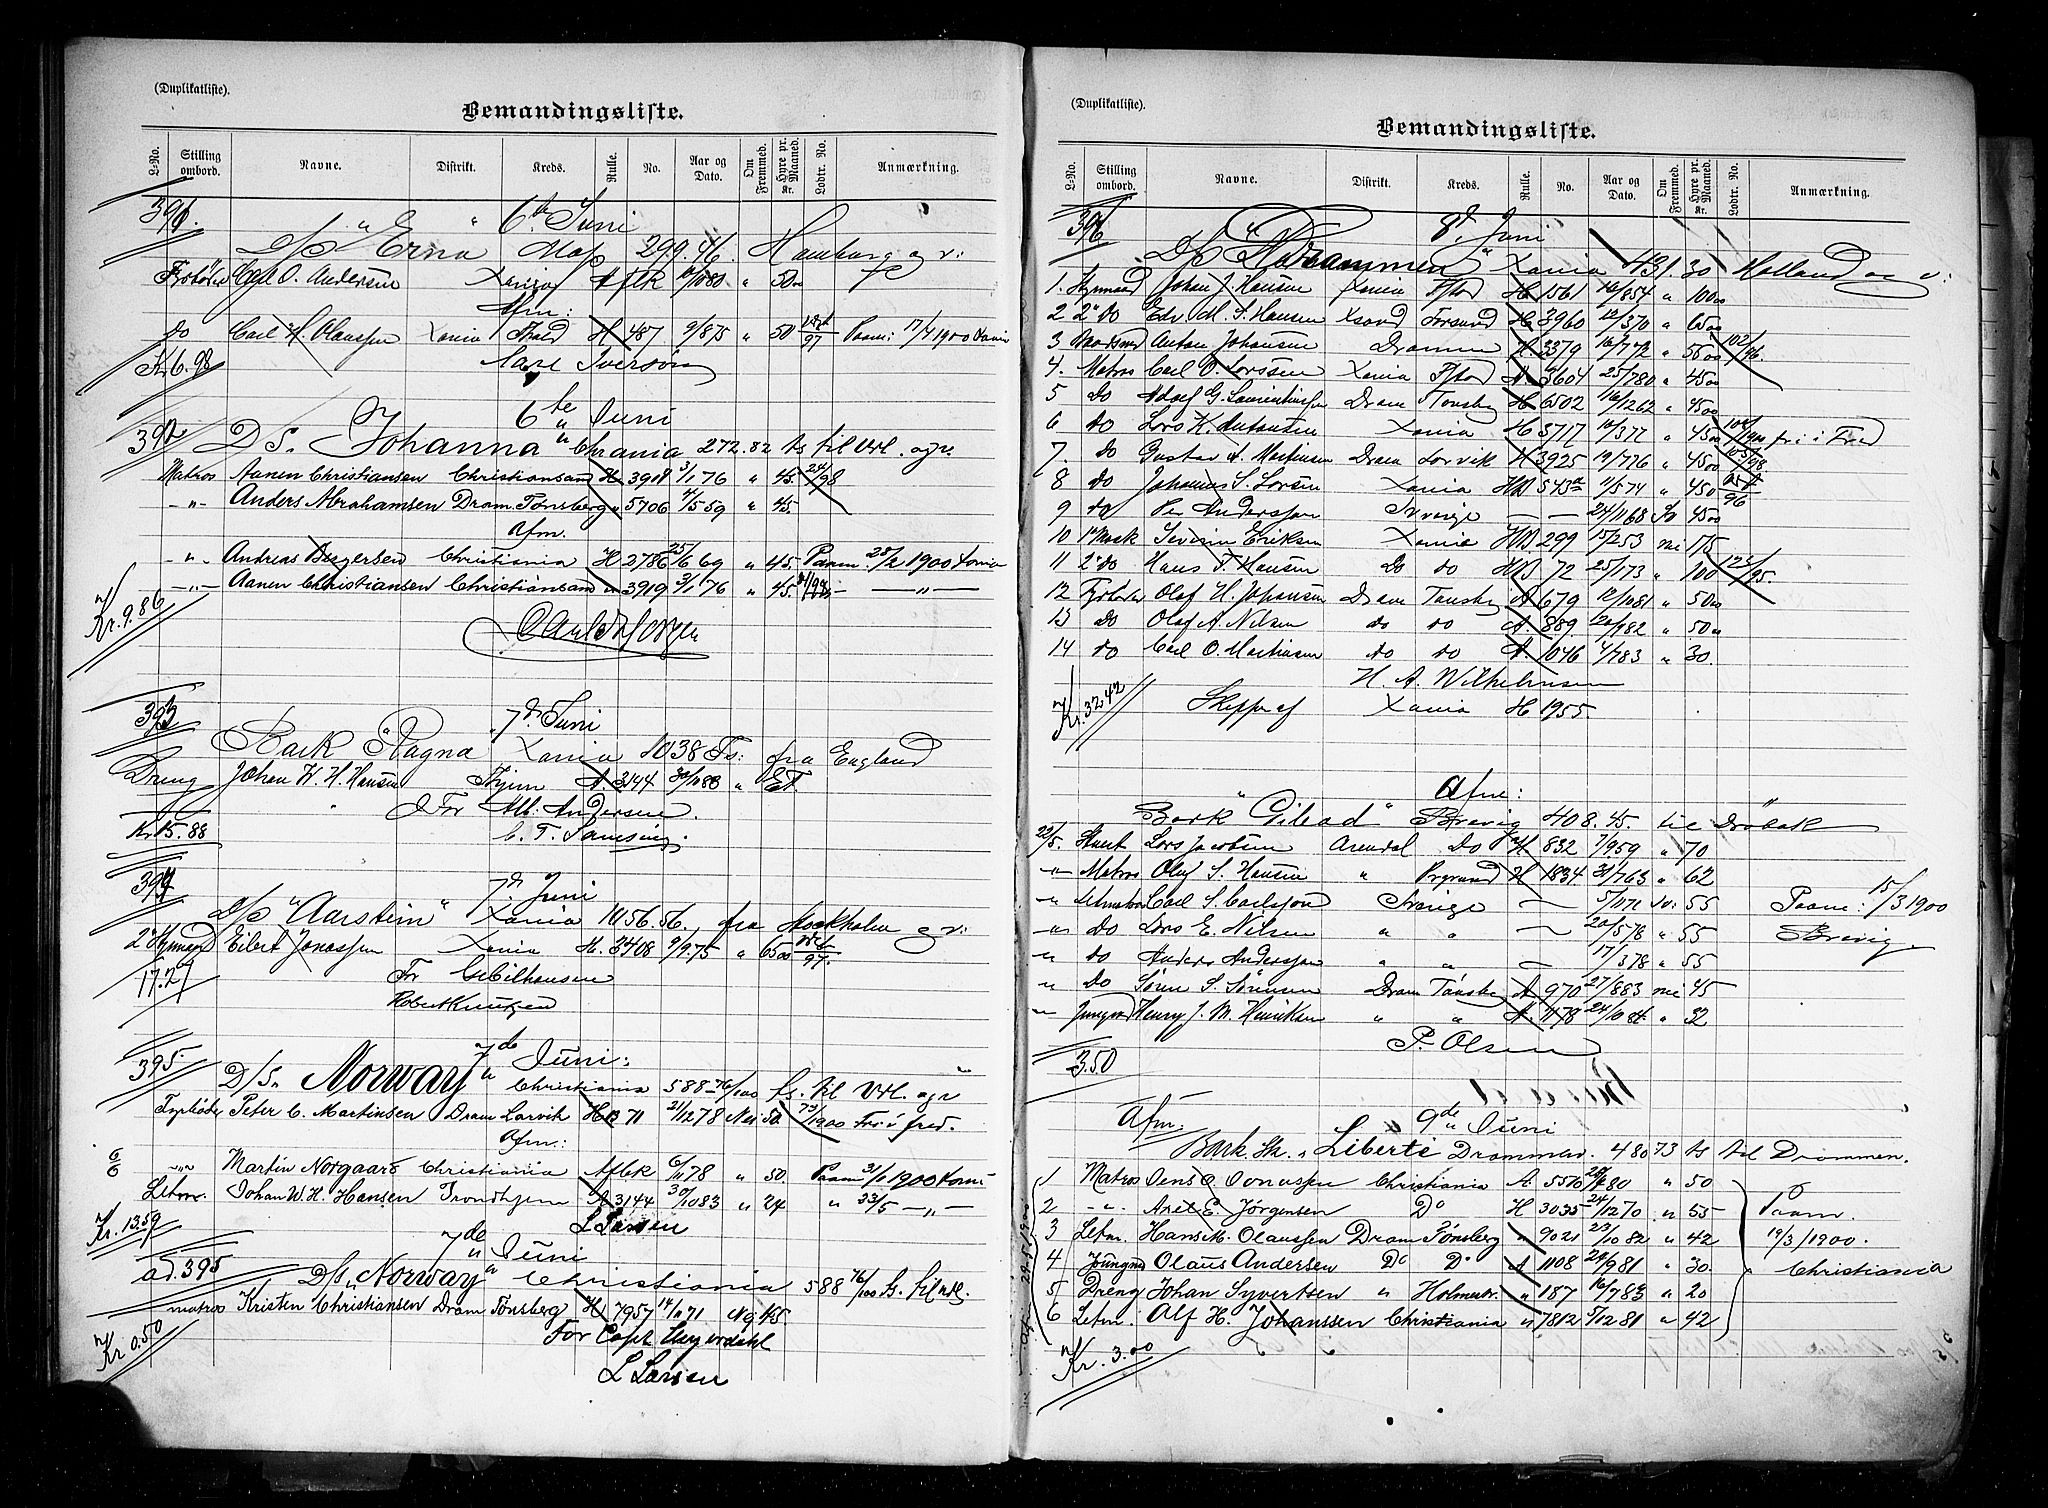 (Duplikatliste).
Bemandingsliste.
L-No. Stilling ombord. Navne. Distrikt. Kreds. Rulle. No. Aar og Dato. Om Fremmed. Hyre pr. Maaned. Kr. Lodtr. No. Anmærkning.
391. 6te Juni
D/S "Erna" 299.46. Hamburg og v:
Fyrbøder Carl O. Andersen Xania Aflk 50
Afm:
do Carl H. Olaussen Xania H 487 9/875 " 50 97 Paam: 17/4 1900 Xania
Kr 6.98 Carl Iversøn
6te Juni
392 D/S. "Johanna" Chrania 272.82 ts til Udl. ogv.
Matros Aanen Christiansen Christiansand H 3918 3/1 76 " 45. 24/98
-"- Anders Abrahamsen Dram. Tønsberg " 5706 4/5 59 " 45.
Afm.
-"- Andreas Christiania H 2786 25/6 69 " 45. Paam. 28/2 1900 Xania
-"- Aanen Christiansen Christiansand " 3919 3/1 76 " 45. -"-
Kr. 9.86
393 7de Juni
Bark "Ragna" Xania 1038 Ts: fra England
Dreng Johan W. H. Hansen Thjem A. 3144 30/1083 "
For Alb. Andersen.
Kr 15.88
394 7de Juni
D/S "Aarstein" Xania 1056.56., fra Stockholm ogv:
2 Styrmand Eilert Jonassen Xania H. 2408 9/975 " 65 97.
17.27 For
Robert Knutzen
7de Juni:
395. D/S. "Norway" Christiania 588 76/100 ts. til Udl. ogv
Fyrbøder Peter C. Martinsen Dram Larvik HB 71 21/1278 Nei 50. 73/1900 Fri i fred.
Afm:
6/6 -"- Martin Norgaard Christiania Aflk 6/11 78 " 50. Paam 31/1 1900 Xania
Letm. Johan W. H. Hansen Trondhjem A 3144 30/1083 " 24 " 23/5 -"-
Kr. 13.59 L Larsen
7de Juni
ad. 395 D/S. "Norway" Christiania 588 76/100 ts. til Udl.
matros Kristen Christiansen Dram Tønsberg H 7957 14/11 71 45
Kr 0.50 For Capt
L Larsen
(Duplikatliste).
Bemandingsliste.
L-No. Stilling ombord. Navne. Distrikt. Kreds. Rulle. No. Aar og Dato. Om Fremmed. Hyre pr. Maaned. Kr. Lodtr. No. Anmærkning.
396 8de Juni
D/S "Drammen" Xania 431.30 Holland og v:
1. Styrmand Johan J. Hansen Xania Fstad H 1561 16/854 " 100
2 2" do Edv. M. S. Hansen Xsand Forsund H 3960 12/370 " 65
3 Anton Johansen Drammen H 3379 16/772 " 55 102/96.
4. Matros Carl O. Larssen Xania Fstad A. 3604 25/780 " 45
5 do Adolf G. Dram Tønsb H 6502 16/1262 " 45
6 do Lars K. Antonsen Xania H 3717 10/377 " 45 fri i Fred
7. do Gustav A. Martinsen Dram Larvik H 3925 19/776 " 45 98
8 do Johannes S. Larsen Xania HB 543 11/574 " 45 96
9 do Per Andersson Sverige — — 24/1168 Ja 45
10 1" Mask Severin Eriksen Xania HB. 299 15/253 nei 175
11 2" do Hans T. Hansen do do HB 72 25/173 " 100 95.
12 Fyrbøder Olaf H. Johansen Dram Tønsb A 679 12/1081 " 50
13 do Olaf A. Nilsen do do A. 889. 20/982 " 50
14 do Carl O. Martinsen do do A. 1046 4/783 " 30.
H. A. Wilhelmsen
Kr. 32.42 Skipper af Xania H 1955.
Afm:
Bark "Gilead" Brevig 408.45. til Drøbak
22/5. Stuert Lars Jacobsen Arendal do H 832 7/959 " 70
-"- Matros Oluf S. Hansen " Prgrund H 1834 31/763 " 62
" Letmatros Carl S. Carlsson Sverige — 5/1171 Ja: 55 Paam: 15/3 1900
" do Lars E. Nilsen " " — 20/576 " 55 Brevig
" do Anders Andersson " " — 17/378 " 55
" do Søren S. Sørensen Dram Tønsb A 970 27/883 nei 45
" Jungmd Henry J. M. Henriksen " " A. 1178 24/1084 " 32
P. Olsen
3.50
9de Juni
Afm: Bark Sk. "Liberté" Drammen. 480 73 ts til Drammen.
1 Matros Jens O. Jonassen Christiania A. 5570 80 " 50
2 -"- Axel E. Jørgensen Do H 3035 24/1270 " 55 Paam.
3 Letm. Hans M. Olaussen Dram Tønsberg " 9021 23/1082 " 42 19/3/1900.
4 Jüngmd Olaus Andersen Do Do A 1108 28/981 " 30. Christiania
5 Dreng Johan Syvertsen " Holmestr. " 187 16/783 " 20
6 Letm. Alf H. Johanssen Christiania " 7812 5/1281 " 42
Af. 29-5 1900
Kr. 3.00